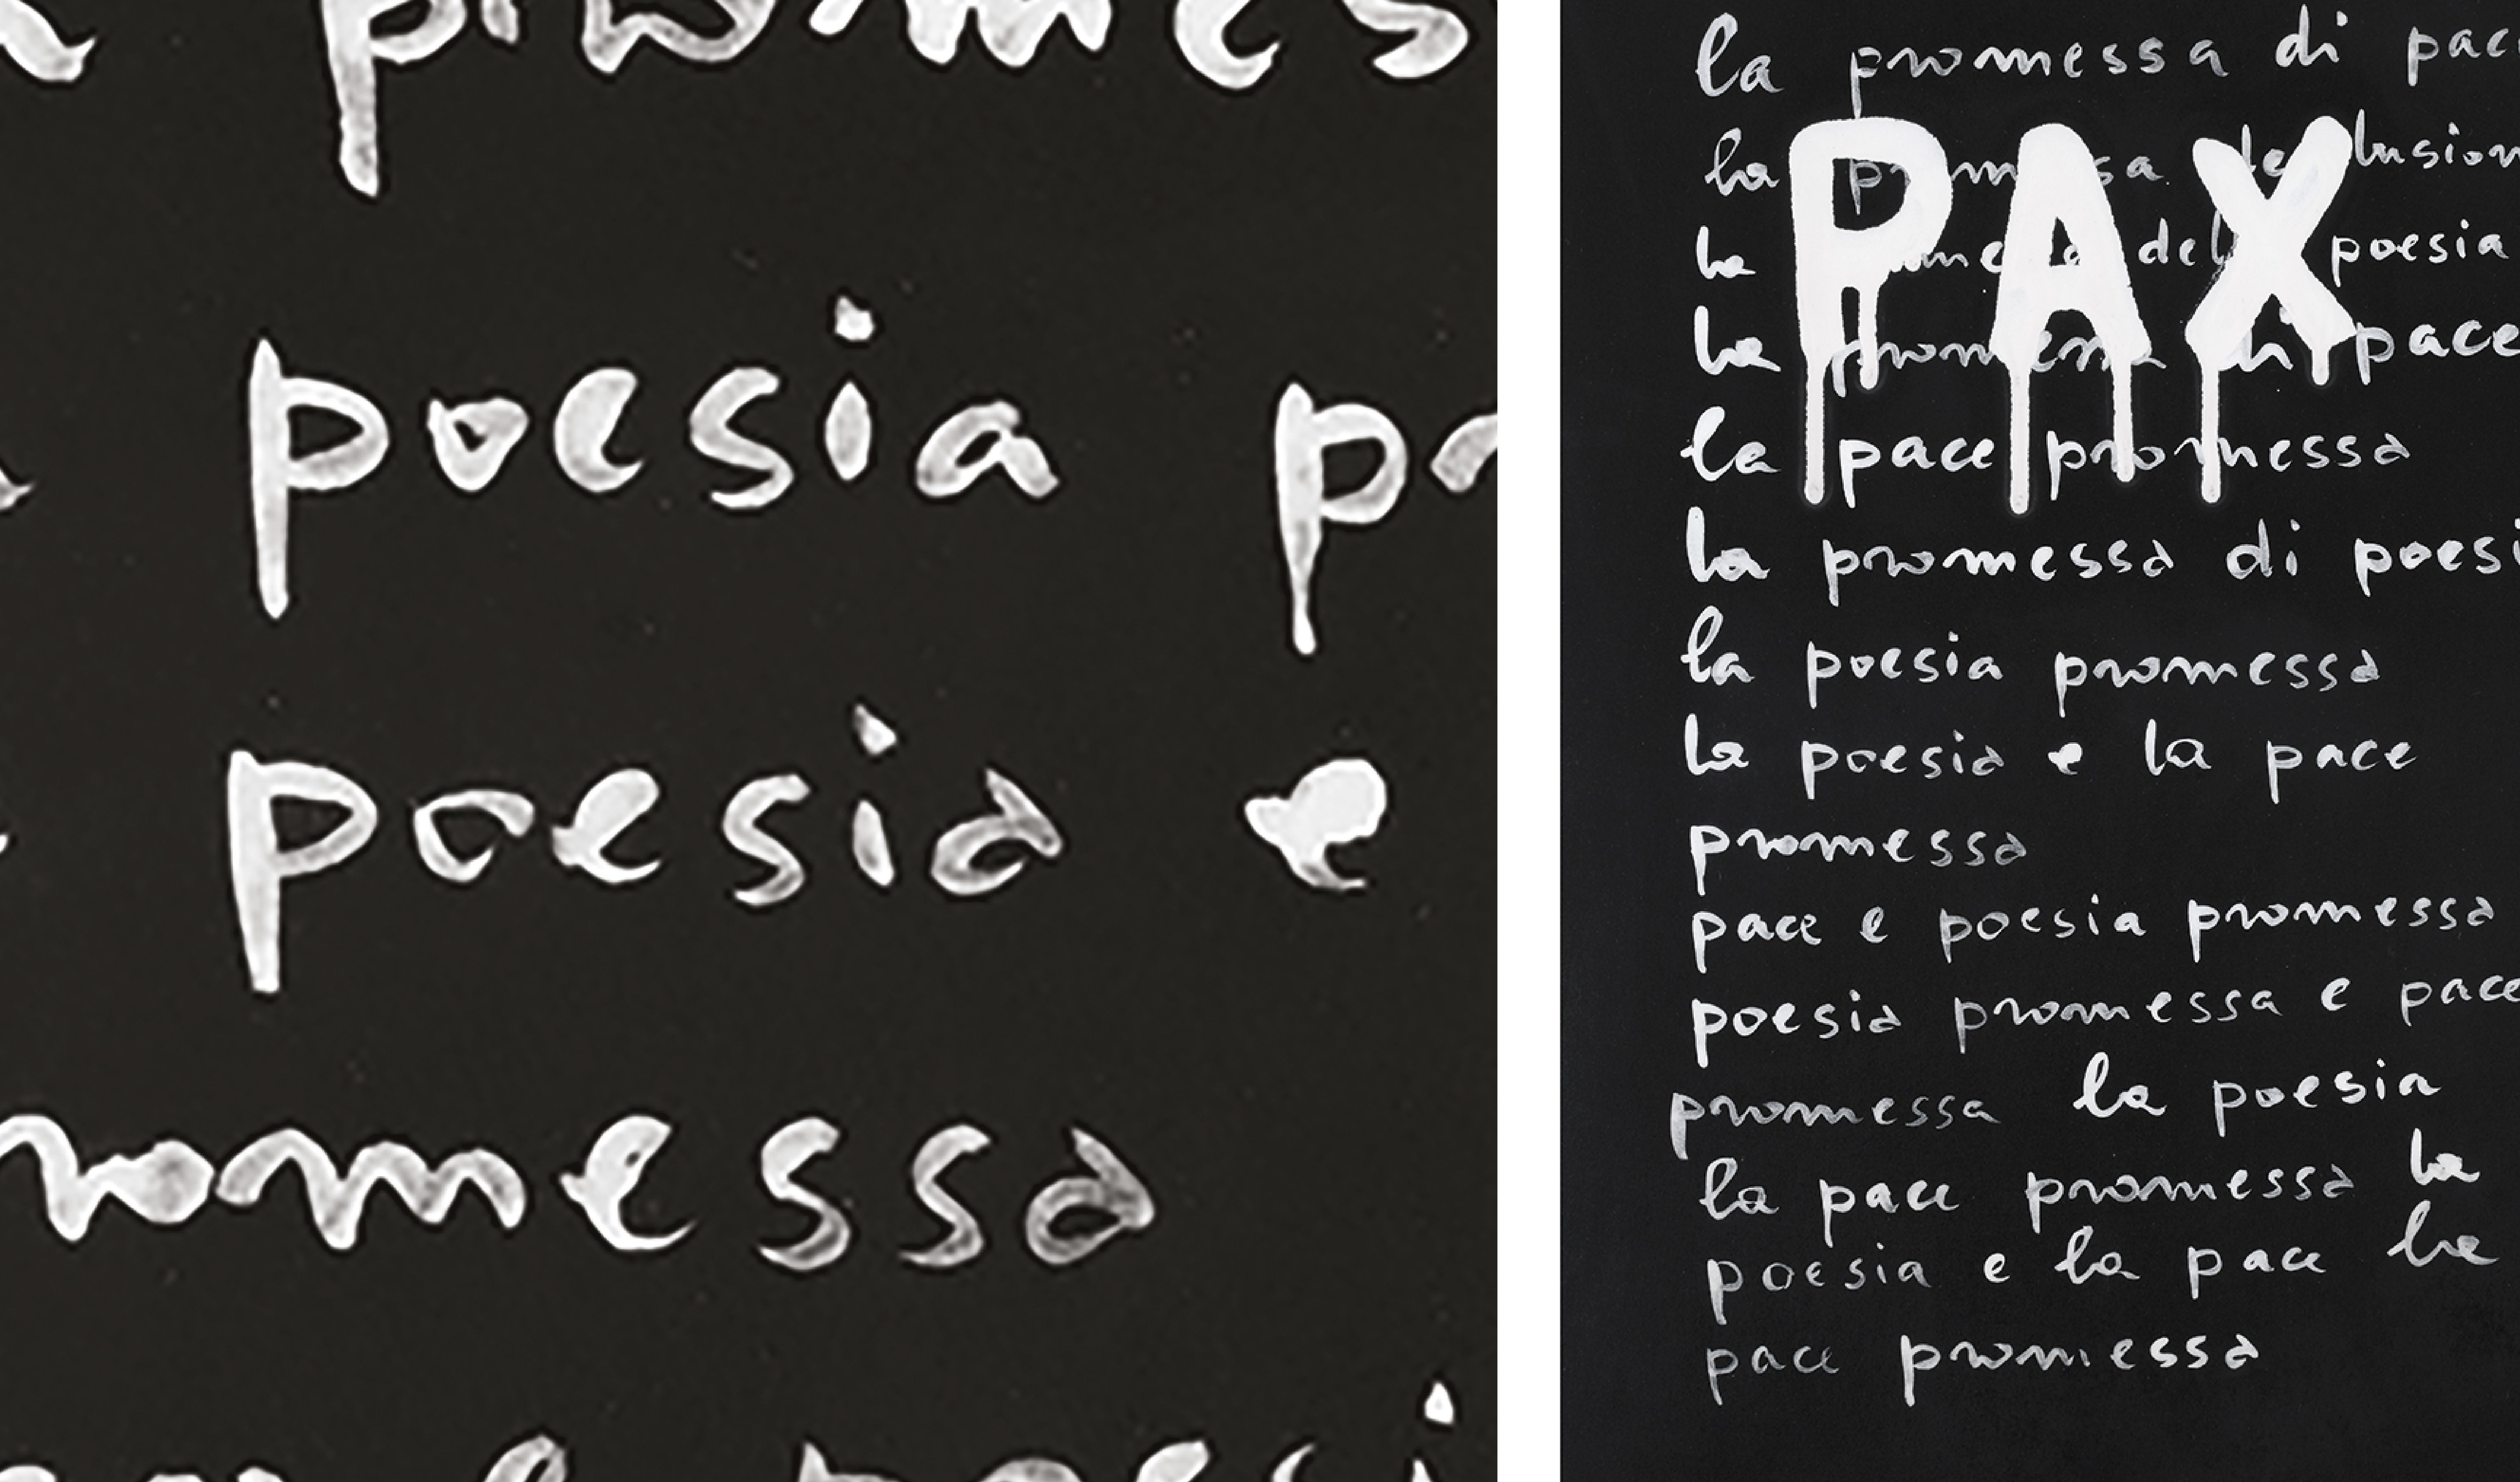 promes
poesia pr
poesia e
romessa
la promessa di pac
PAX
la poesia
la promessa di pace
la pace promessa
la promessa di poesi
la poesia promessa
la poesia e la pace
promessa
pace e poesia promessa
poesia promessa e pace
promessa la poesia
la pace promessa la
poesia e la pace la
pace promessa